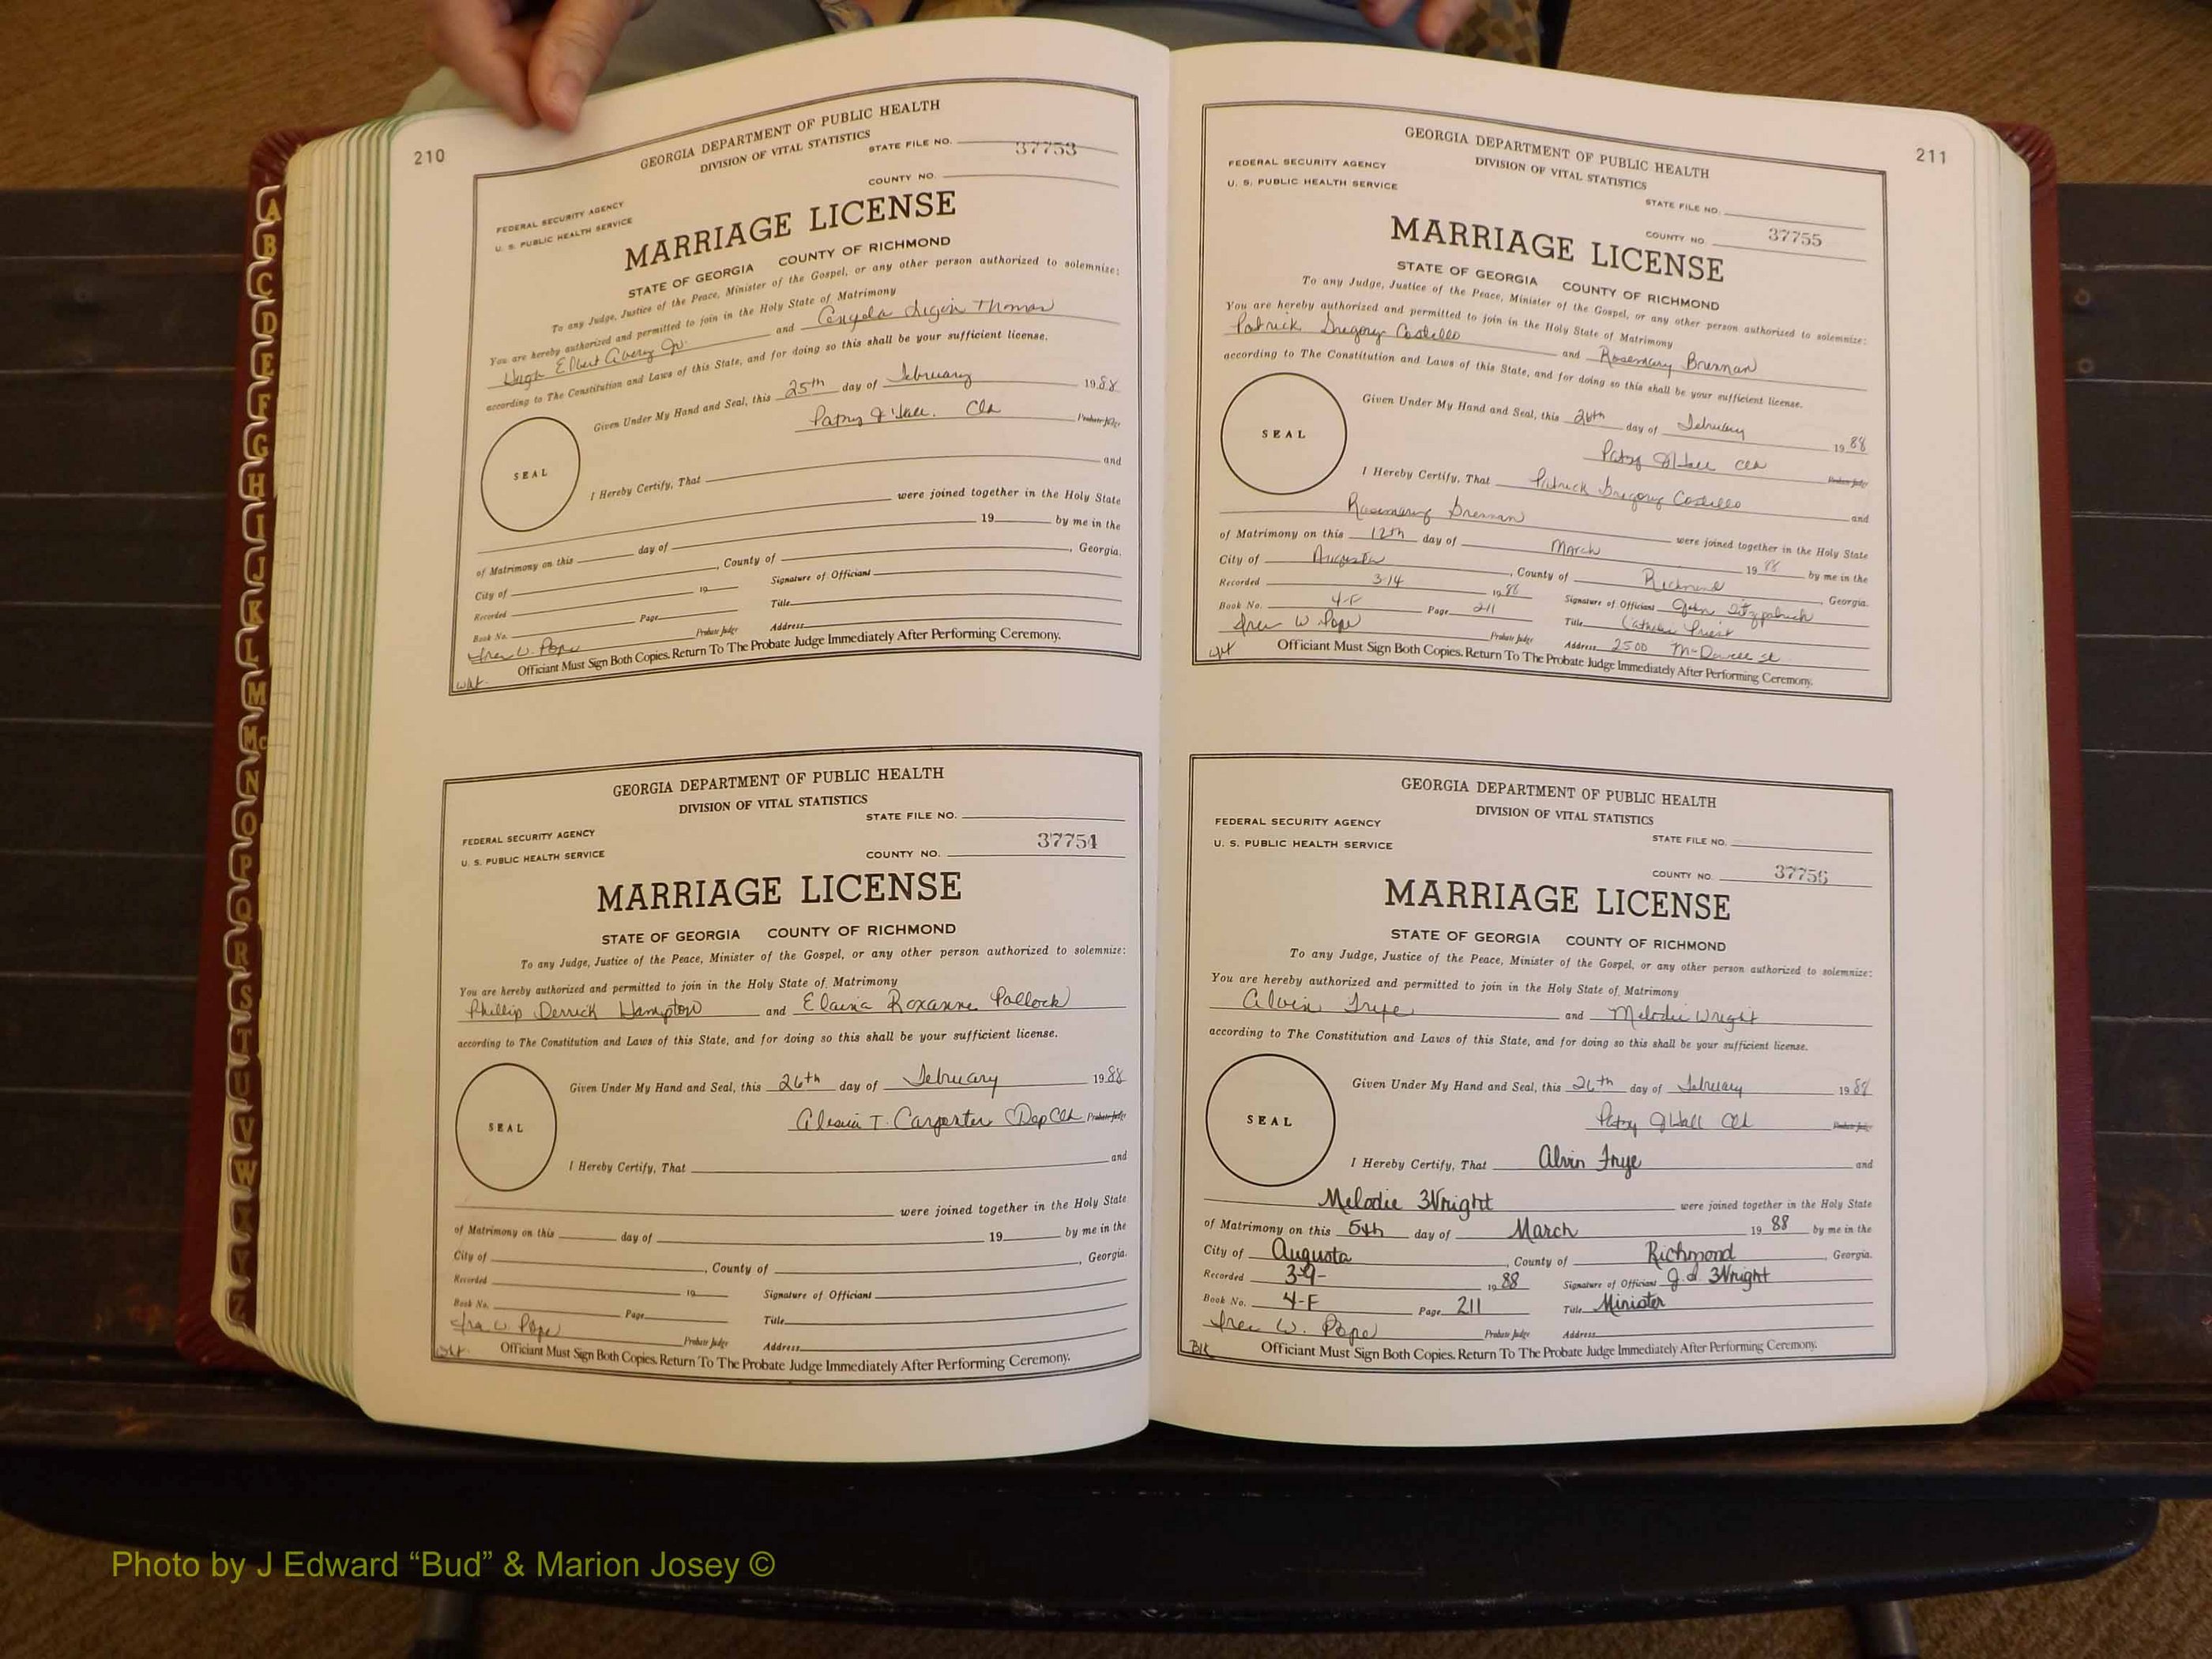 210
GEORGIA DEPARTMENT OF PUBLIC HEALTH
DIVISION OF VITAL STATISTICS
STATE FILE NO. 37753
FEDERAL SECURITY AGENCY
U. S. PUBLIC HEALTH SERVICE
COUNTY NO.
MARRIAGE LICENSE
STATE OF GEORGIA COUNTY OF RICHMOND
To any Judge, Justice of the Peace, Minister of the Gospel, or any other person authorized to solemnize:
You are hereby authorized and permitted to join in the Holy State of Matrimony
Hugh Elbert Avery Jr. and Thomas
according to The Constitution and Laws of this State, and for doing so this shall be your sufficient license.
Given Under My Hand and Seal, this 25th day of February 1988
Patsy J Hall. Clk Probate Judge
SEAL
I Hereby Certify, That and
were joined together in the Holy State
of Matrimony on this day of 19 by me in the
City of , County of , Georgia.
Recorded 19 Signature of Officiant
Book No. Page Title
Ira W. Pope Probate Judge Address
Officiant Must Sign Both Copies. Return To The Probate Judge Immediately After Performing Ceremony.
wht
GEORGIA DEPARTMENT OF PUBLIC HEALTH
DIVISION OF VITAL STATISTICS
STATE FILE NO.
FEDERAL SECURITY AGENCY
U. S. PUBLIC HEALTH SERVICE
COUNTY NO. 37754
MARRIAGE LICENSE
STATE OF GEORGIA COUNTY OF RICHMOND
To any Judge, Justice of the Peace, Minister of the Gospel, or any other person authorized to solemnize:
You are hereby authorized and permitted to join in the Holy State of Matrimony
Phillip Derrick Hampton and Elaina Roxanne Pollock
according to The Constitution and Laws of this State, and for doing so this shall be your sufficient license.
Given Under My Hand and Seal, this 26th day of February 1988
T. Carpenter Dep Clk Probate Judge
SEAL
I Hereby Certify, That and
were joined together in the Holy State
of Matrimony on this day of 19 by me in the
City of , County of , Georgia.
Recorded 19 Signature of Officiant
Book No. Page Title
Ira W. Pope Probate Judge Address
Officiant Must Sign Both Copies. Return To The Probate Judge Immediately After Performing Ceremony.
wht
211
GEORGIA DEPARTMENT OF PUBLIC HEALTH
DIVISION OF VITAL STATISTICS
FEDERAL SECURITY AGENCY
U. S. PUBLIC HEALTH SERVICE
STATE FILE NO.
COUNTY NO. 37755
MARRIAGE LICENSE
STATE OF GEORGIA COUNTY OF RICHMOND
To any Judge, Justice of the Peace, Minister of the Gospel, or any other person authorized to solemnize:
You are hereby authorized and permitted to join in the Holy State of Matrimony
Patrick Gregory Costello and Rosemary Brennan
according to The Constitution and Laws of this State, and for doing so this shall be your sufficient license.
Given Under My Hand and Seal, this 26th day of February 1988
Patsy J Hall Clk Probate Judge
SEAL
I Hereby Certify, That Patrick Gregory Costello and
Rosemary Brennan were joined together in the Holy State
of Matrimony on this 12th day of March 1988 by me in the
City of Augusta , County of Richmond Georgia.
Recorded 3-14 1988 Signature of Officiant John Fitzpatrick
Book No. 4-F Page 211 Title Catholic Priest
Ira W Pope Probate Judge Address 2500 McDowell St
Officiant Must Sign Both Copies. Return To The Probate Judge Immediately After Performing Ceremony.
wht
GEORGIA DEPARTMENT OF PUBLIC HEALTH
DIVISION OF VITAL STATISTICS
FEDERAL SECURITY AGENCY
U. S. PUBLIC HEALTH SERVICE
STATE FILE NO.
COUNTY NO. 37756
MARRIAGE LICENSE
STATE OF GEORGIA COUNTY OF RICHMOND
To any Judge, Justice of the Peace, Minister of the Gospel, or any other person authorized to solemnize:
You are hereby authorized and permitted to join in the Holy State of Matrimony
Alvin Frye and Melodie Wright
according to The Constitution and Laws of this State, and for doing so this shall be your sufficient license.
Given Under My Hand and Seal, this 26th day of February 1988
Patsy J Hall Clk Probate Judge
SEAL
I Hereby Certify, That Alvin Frye and
Melodie Wright were joined together in the Holy State
of Matrimony on this 5th day of March 1988 by me in the
City of Augusta , County of Richmond , Georgia.
Recorded 3-9- 1988 Signature of Officiant J. d. Wright
Book No. 4-F Page 211 Title Minister
Ira W. Pope Probate Judge Address
Officiant Must Sign Both Copies. Return To The Probate Judge Immediately After Performing Ceremony.
Blk
A
B
C
D
E
F
G
H
I
J
K
L
M
Mc
N
O
P
Q
R
S
T
U
V
W
X
Y
Z
Photo by J Edward “Bud” & Marion Josey ©